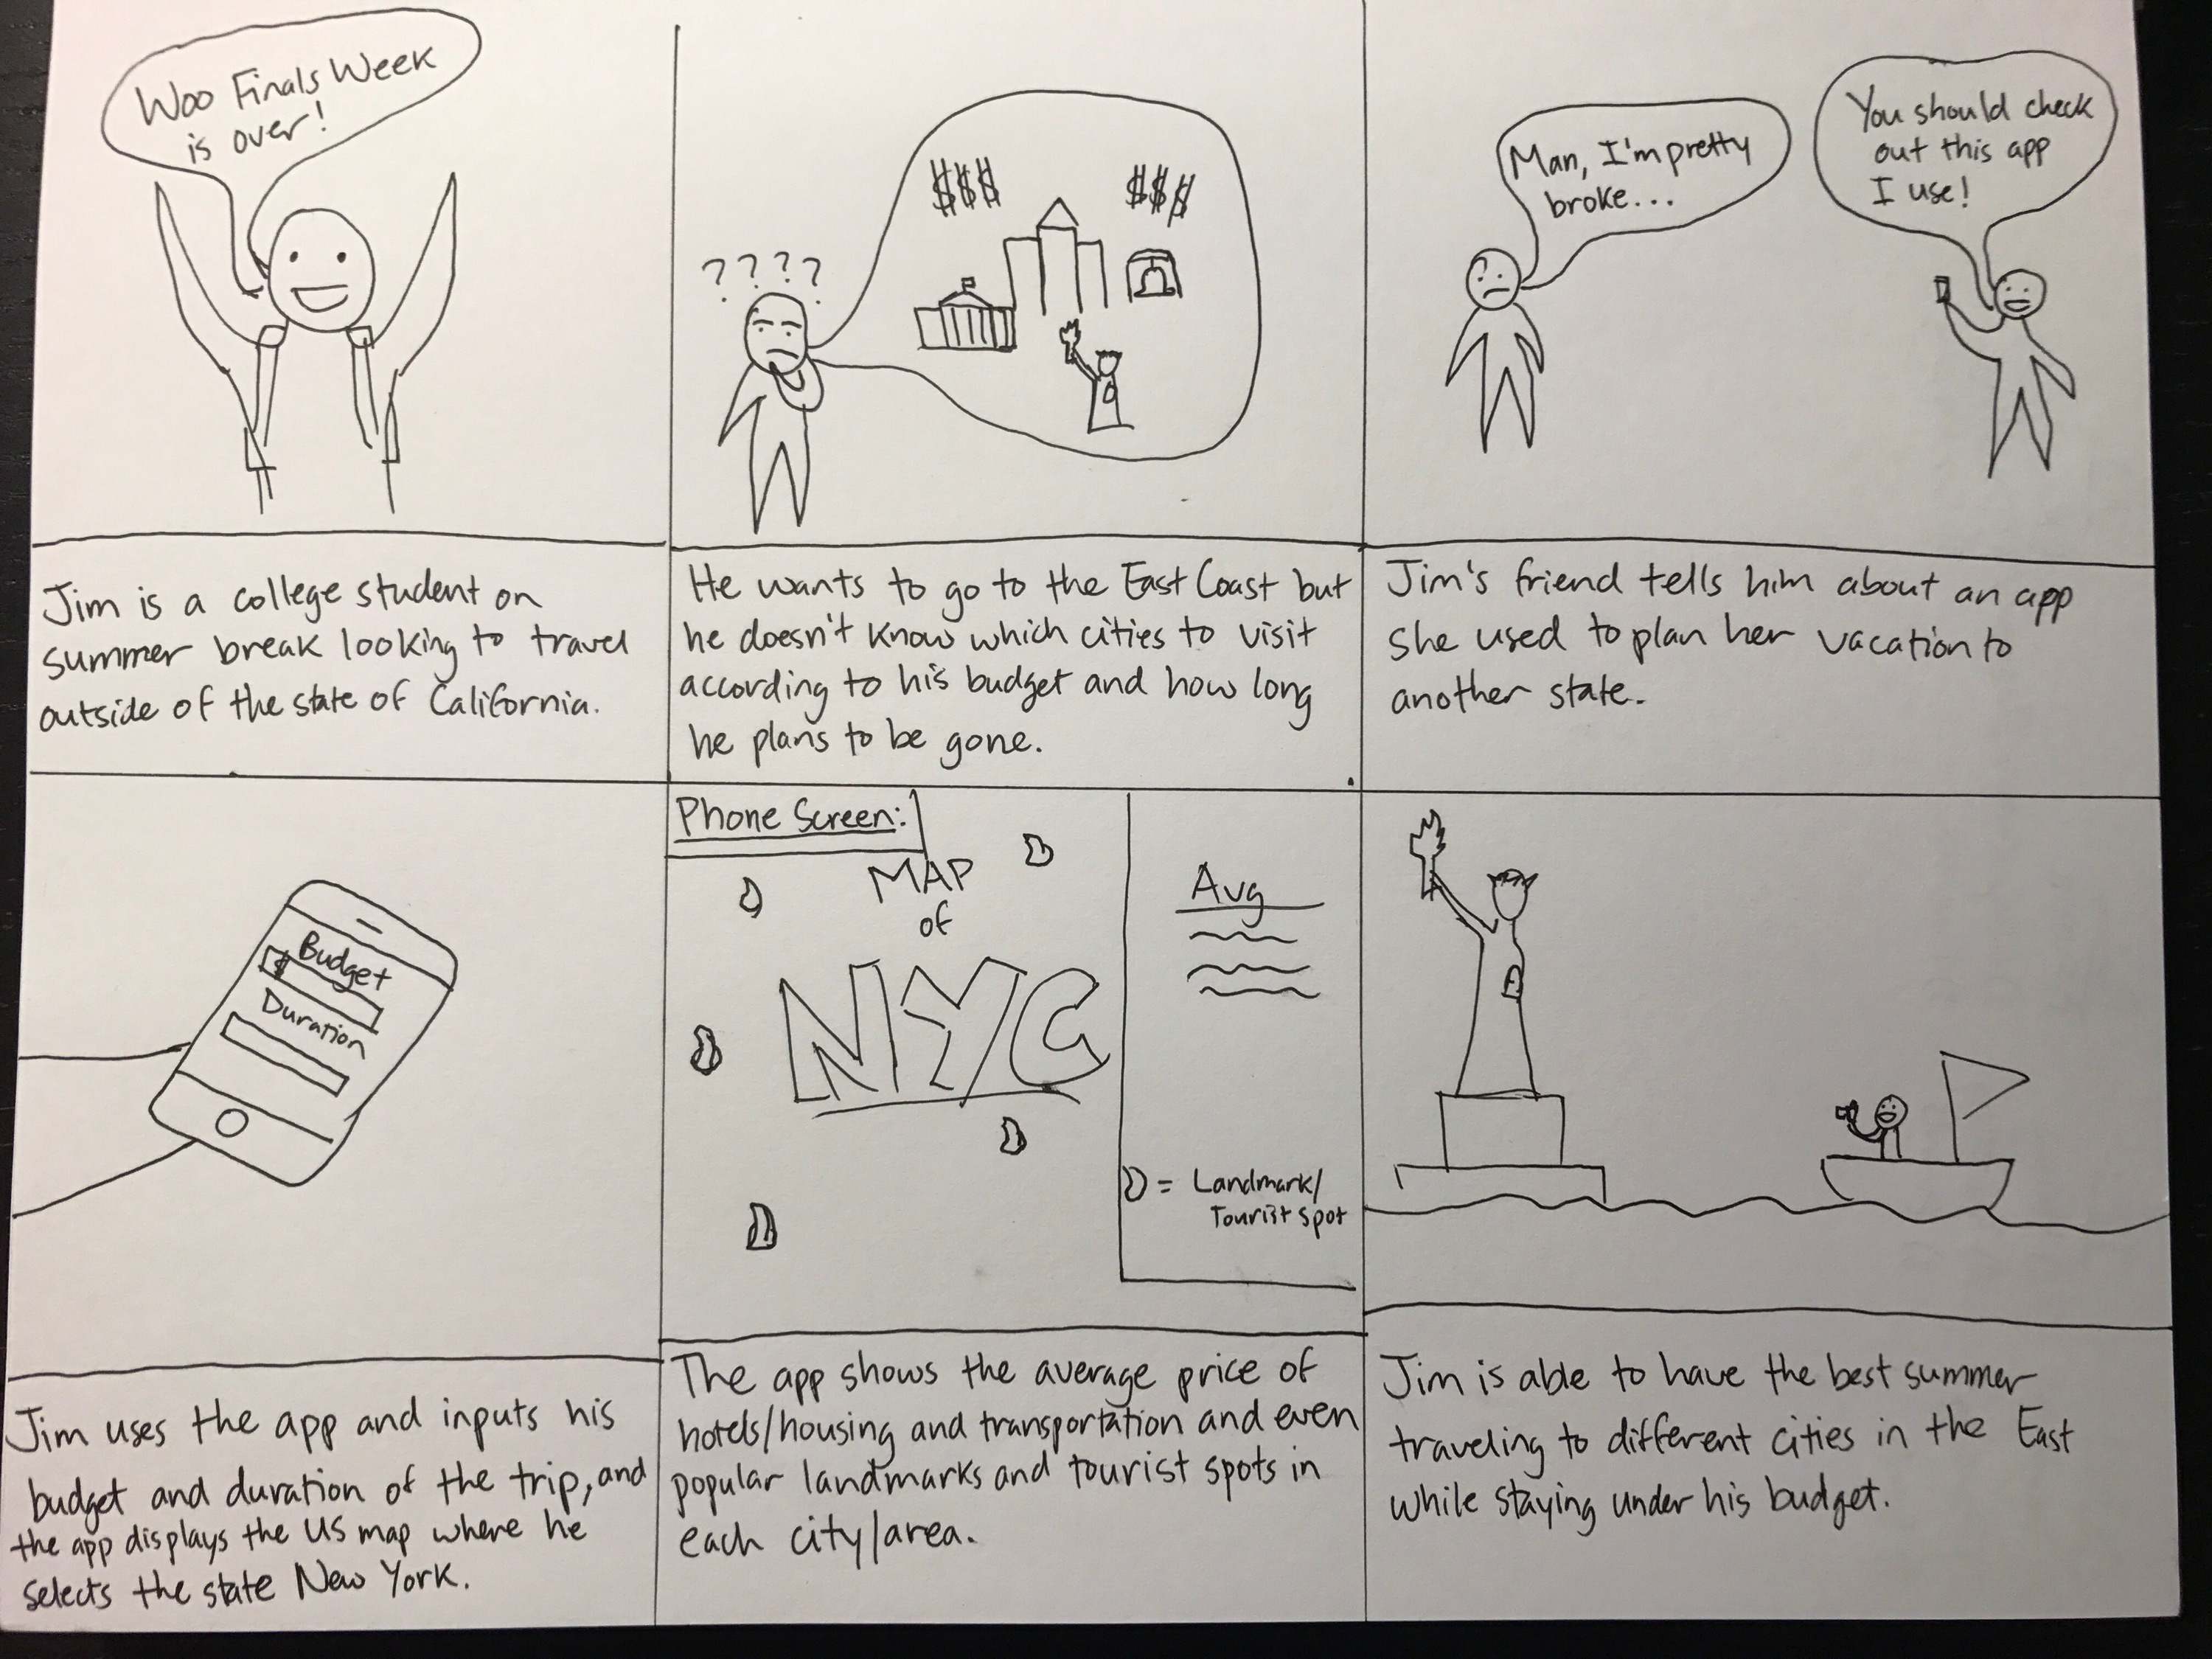 Woo Finals Week
is over!
Jim is a college student on
summer break looking to travel
outside of the state of California.
????
$$$ $$$
He wants to go to the East Coast but
he doesn't know which cities to visit
according to his budget and how long
he plans to be gone.
Man, I'm pretty
broke...
You should check
out this app
I use!
Jim's friend tells him about an app
she used to plan her vacation to
another state.
Budget
$
Duration
Jim uses the app and inputs his
budget and duration of the trip, and
the app displays the US map where he
selects the state New York.
Phone Screen:
MAP
of
NYC
Avg
= Landmark/
Tourist spot
The app shows the average price of
hotels/housing and transportation and even
popular landmarks and tourist spots in
each city/area.
Jim is able to have the best summer
traveling to different cities in the East
while staying under his budget.